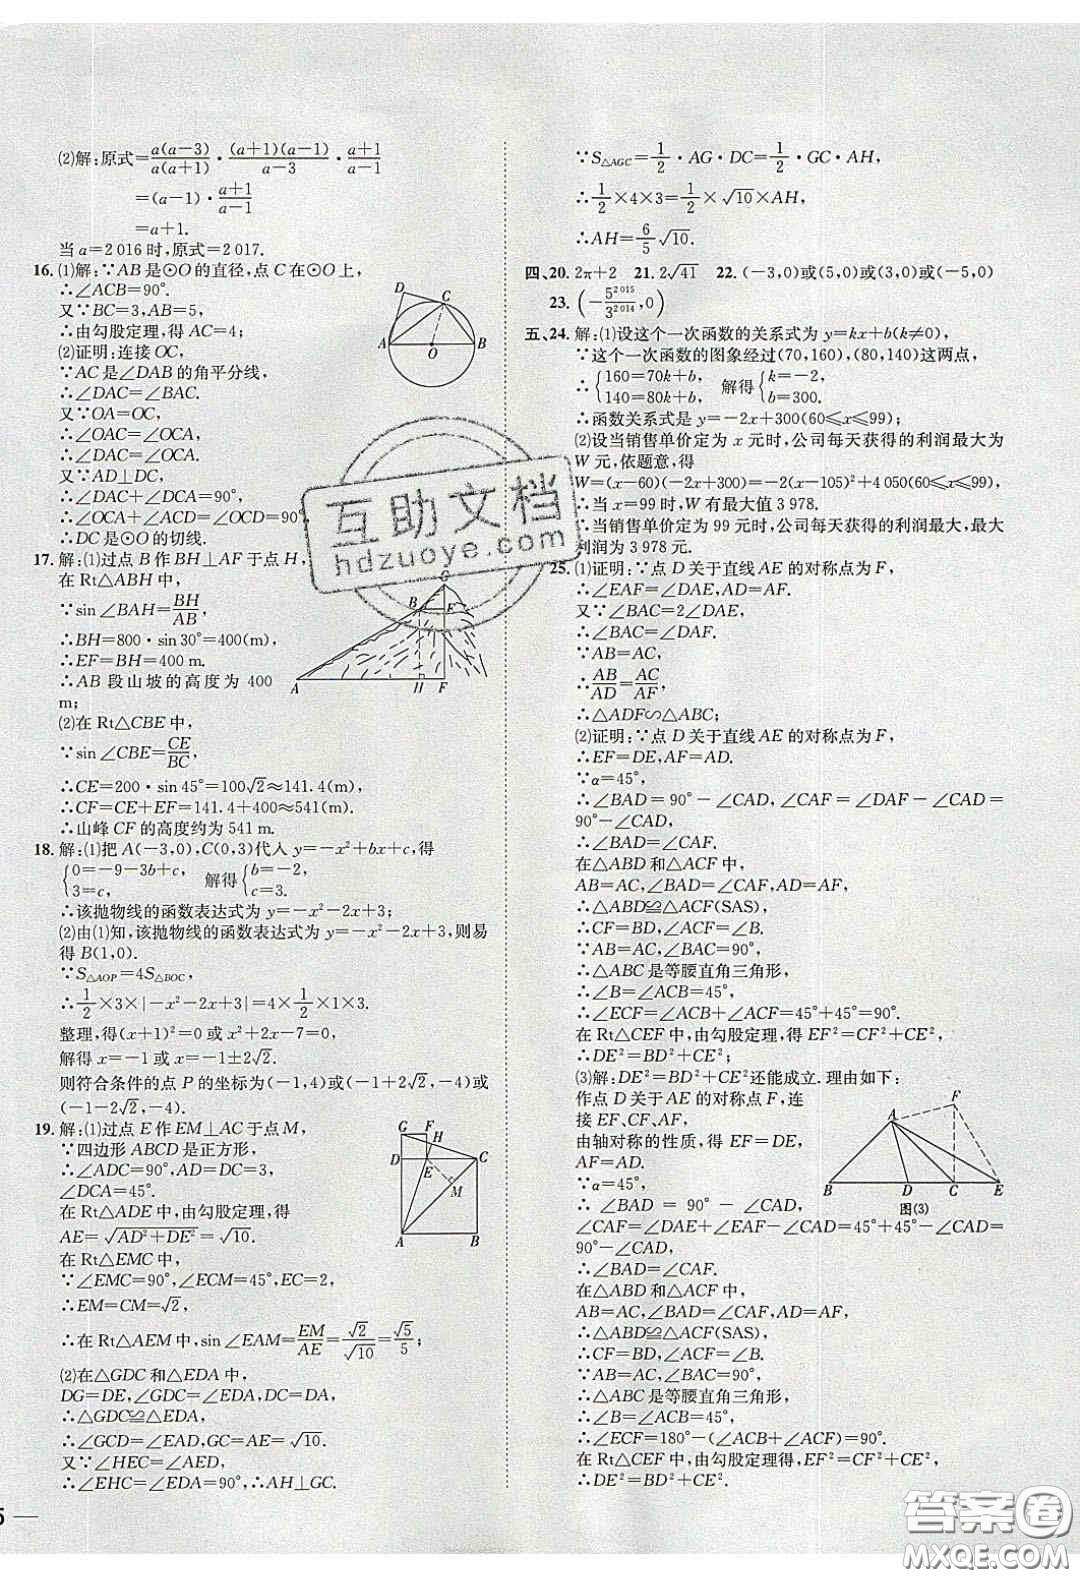 (2)解:原式=a(a-3)/a(a+1)·(a+1)(a-1)/a-3·a+1/a-1
=(a-1)·a+1/a-1
=a+1.
当a=2 016时,原式=2 017.
16.(1)解:∵AB是⊙O的直径,点C在⊙O上,
∴∠ACB=90°.
又∵BC=3,AB=5,
∴由勾股定理,得AC=4;
(2)证明:连接OC,
∵AC是∠DAB的角平分线,
∴∠DAC=∠BAC.
又∵OA=OC,
∴∠OAC=∠OCA,
∴∠DAC=∠OCA.
又∵AD⊥DC,
∴∠DAC+∠DCA=90°,
∴∠OCA+∠DCA=∠OCD=90°,
∴DC是⊙O的切线.
D
C
A
O
B
17.解:(1)过点B作BH⊥AF于点H,
在Rt△ABH中,
∵sin∠BAH=BH/AB,
∴BH=800·sin30°=400(m),
∴EF=BH=400 m.
∴AB段山坡的高度为400
m;
(2)在Rt△CBE中,
∵sin∠CBE=CE/BC,
∴CE=200·sin45°=100√2≈141.4(m),
∴CF=CE+EF=141.4+400≈541(m).
∴山峰CF的高度约为541 m.
C
B
E
A
H
F
18.解:(1)把A(-3,0),C(0,3)代入y=-x²+bx+c,得
{0=-9-3b+c, 3=c, 解得{b=-2, c=3.
∴该抛物线的函数表达式为y=-x²-2x+3;
(2)由(1)知,该抛物线的函数表达式为y=-x²-2x+3,则易
得B(1,0).
∵S△AOP=4S△BOC,
∴1/2×3×|-x²-2x+3|=4×1/2×1×3.
整理,得(x+1)²=0或x²+2x-7=0,
解得x=-1或x=-1±2√2.
则符合条件的点P的坐标为(-1,4)或(-1+2√2,-4)或
(-1-2√2,-4).
19.解:(1)过点E作EM⊥AC于点M,
∵四边形ABCD是正方形,
∴∠ADC=90°,AD=DC=3,
∠DCA=45°.
在Rt△ADE中,由勾股定理,得
AE=√AD²+DE²=√10.
在Rt△EMC中,
∵∠EMC=90°,∠ECM=45°,EC=2,
∴EM=CM=√2,
∴在Rt△AEM中,sin∠EAM=EM/AE=√2/√10=√5/5;
(2)在△GDC和△EDA中,
DG=DE,∠GDC=∠EDA,DC=DA,
∴△GDC≌△EDA,
∴∠GCD=∠EAD,GC=AE=√10.
又∵∠HEC=∠AED,
∴∠EHC=∠EDA=90°,∴AH⊥GC.
G
F
H
D
E
C
M
A
B
∵S△AGC=1/2·AG·DC=1/2·GC·AH,
∴1/2×4×3=1/2×√10×AH,
∴AH=6/5√10.
四、20. 2π+2 21. 2√41 22. (-3,0)或(5,0)或(3,0)或(-5,0)
23. (-5²⁰¹⁵/3²⁰¹⁴,0)
五、24. 解:(1)设这个一次函数的关系式为y=kx+b(k≠0),
∵这个一次函数的图象经过(70,160),(80,140)这两点,
∴{160=70k+b, 140=80k+b, 解得{k=-2, b=300.
∴函数关系式是y=-2x+300(60≤x≤99);
(2)设当销售单价定为x元时,公司每天获得的利润最大为
W元,依题意,得
W=(x-60)(-2x+300)=-2(x-105)²+4 050(60≤x≤99),
∴当x=99时,W有最大值3 978.
∴当销售单价定为99元时,公司每天获得的利润最大,最大
利润为3 978元.
25.(1)证明:∵点D关于直线AE的对称点为F,
∴∠EAF=∠DAE,AD=AF.
又∵∠BAC=2∠DAE,
∴∠BAC=∠DAF.
∵AB=AC,
∴AB/AD=AC/AF.
∴△ADF∽△ABC;
(2)证明:∵点D关于直线AE的对称点为F,
∴EF=DE,AF=AD.
∵α=45°,
∴∠BAD=90°-∠CAD,∠CAF=∠DAF-∠CAD=
90°-∠CAD,
∴∠BAD=∠CAF.
在△ABD和△ACF中,
AB=AC,∠BAD=∠CAF,AD=AF,
∴△ABD≌△ACF(SAS),
∴CF=BD,∠ACF=∠B.
∵AB=AC,∠BAC=90°,
∴△ABC是等腰直角三角形,
∴∠B=∠ACB=45°,
∴∠ECF=∠ACB+∠ACF=45°+45°=90°.
在Rt△CEF中,由勾股定理,得EF²=CF²+CE²,
∴DE²=BD²+CE²;
(3)解:DE²=BD²+CE²还能成立.理由如下:
作点D关于AE的对称点F,连
接EF、CF、AF,
由轴对称的性质,得EF=DE,
AF=AD.
∵α=45°,
∴∠BAD=90°-∠CAD,
∠CAF=∠DAE+∠EAF-∠CAD=45°+45°-∠CAD=
90°-∠CAD,
∴∠BAD=∠CAF.
在△ABD和△ACF中,
AB=AC,∠BAD=∠CAF,AD=AF,
∴△ABD≌△ACF(SAS),
∴CF=BD,∠ACF=∠B.
∵AB=AC,∠BAC=90°,
∴△ABC是等腰直角三角形,
∴∠B=∠ACB=45°,
∴∠ECF=180°-(∠ACB+∠ACF)=90°.
在Rt△CEF中,由勾股定理,得EF²=CF²+CE²,
∴DE²=BD²+CE².
F
A
B
D
C
E
图(3)
互助文档
hdzuoye.com
答案圈
MXQE.COM
5